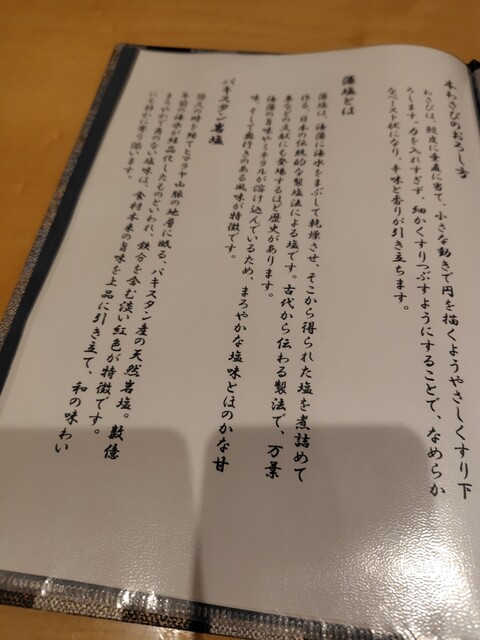 本わさびのおろし方
わさびは、鮫皮に垂直に当て、小さな動きで円を描くようやさしくすり下
ろします。力を入れすぎず、細かくすりつぶすようにすることで、なめらか
なペースト状になり、辛味と香りが引き立ちます。
藻塩とは
藻塩は、海藻に海水をまぶして乾燥させ、そこから得られた塩を煮詰めて
作る、日本の伝統的な製塩法による塩です。古代から伝わる製法で、万葉
集などの文献にも登場するほど歴史があります。
海藻の旨味やミネラルが溶け込んでいるため、まろやかな塩味とほのかな甘
味、そして奥行きのある風味が特徴です。
パキスタン岩塩
悠久の時を経てヒマラヤ山脈の地層に眠る、パキスタン産の天然岩塩。数億
年前の海水が結晶化したものといわれ、鉄分を含む淡い紅色が特徴です。
まろやかで角のない塩味は、食材本来の旨味を上品に引き立て、和の味わい
にも静かに寄り添います。